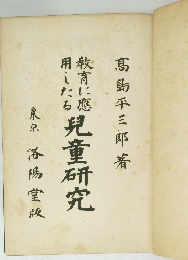 高島平三郎著
教育に應
用したる
兒童研究
東京 洛陽堂版